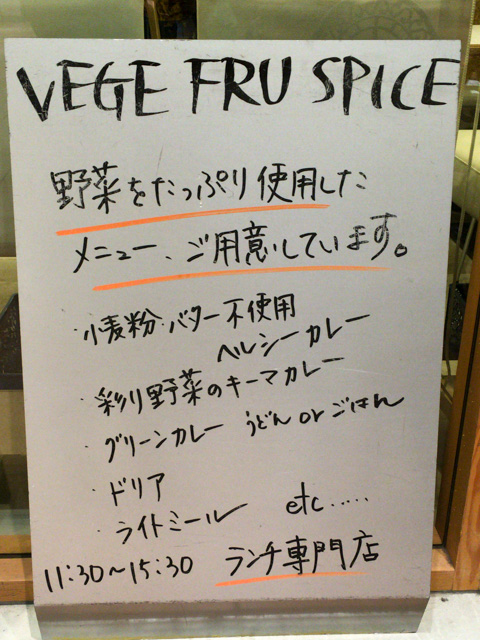 VEGE FRU SPICE
野菜をたっぷり使用した
メニュー、ご用意しています。
・小麦粉・バター不使用
ヘルシーカレー
・彩り野菜のキーマカレー
・グリーンカレー うどん or ごはん
・ドリア
・ライトミール etc.....
11:30～15:30 ランチ専門店